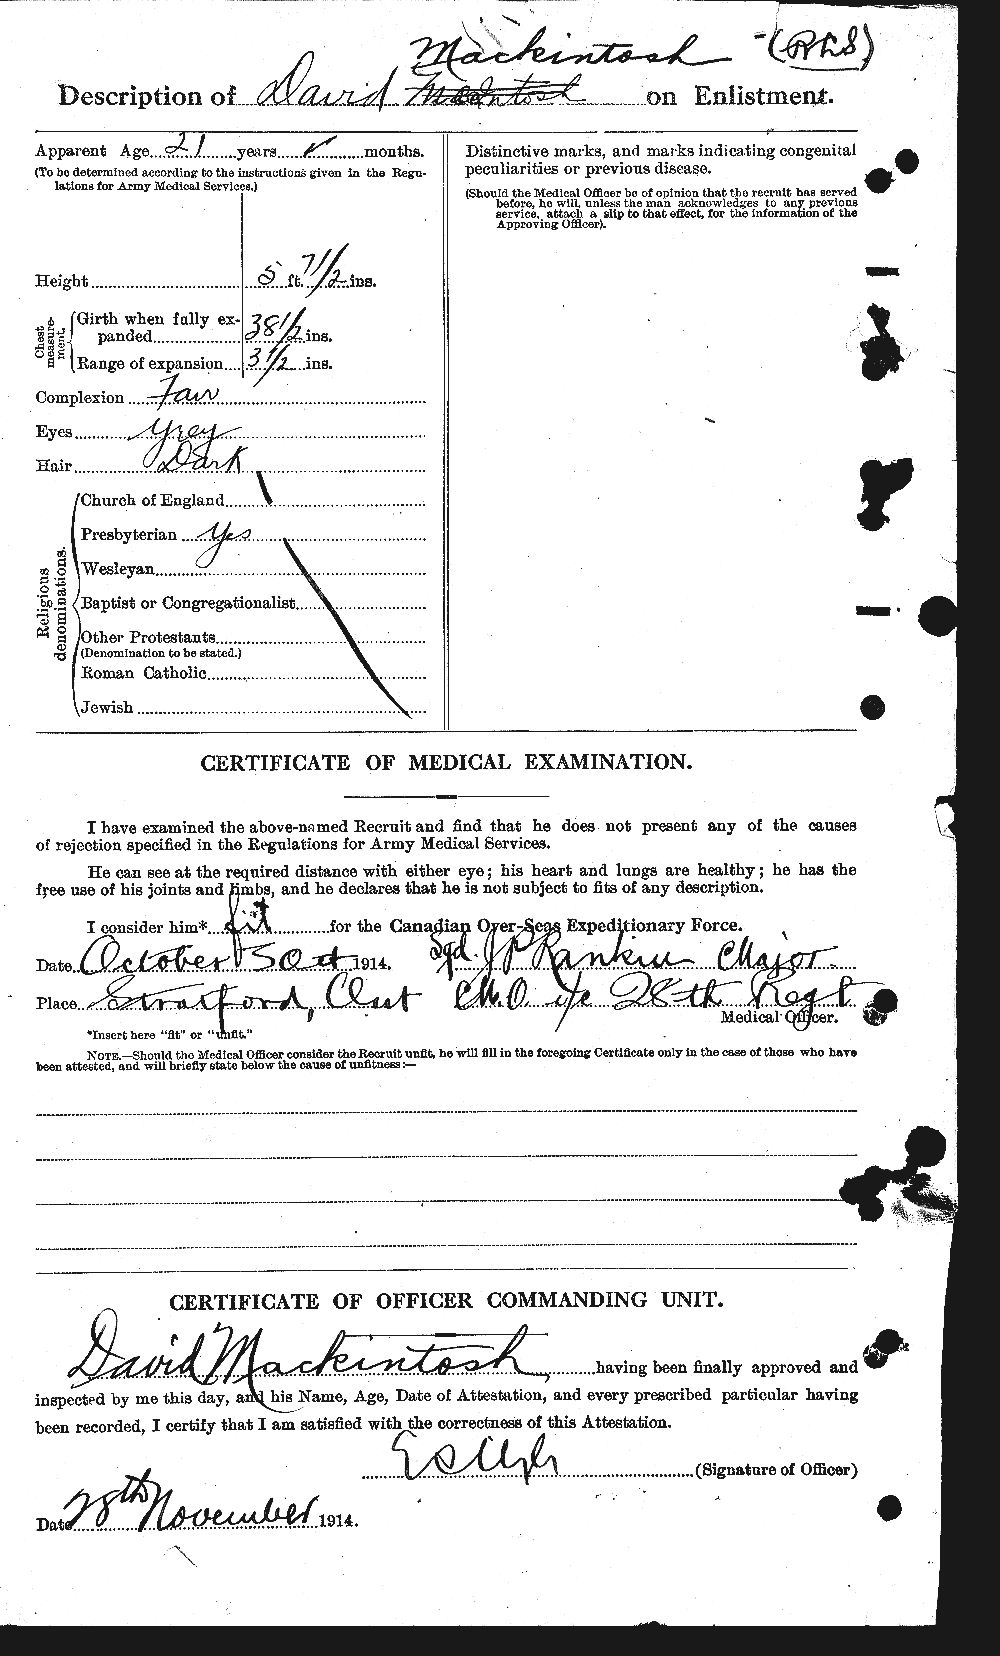 Mackintosh - (RLS)
Description of David McIntosh on Enlistment.
Apparent Age 21 years ✓ months.
(To be determined according to the instructions given in the Regu-
lations for Army Medical Services.)
Height 5 ft. 7 1/2 ins.
Chest measure-ment.
Girth when fully ex-
panded 38 1/2 ins.
Range of expansion 3 1/2 ins.
Complexion Fair
Eyes Grey
Hair Dark
Religious denominations.
Church of England
Presbyterian Yes
Wesleyan
Baptist or Congregationalist
Other Protestants
(Denomination to be stated.)
Roman Catholic
Jewish
Distinctive marks, and marks indicating congenital
peculiarities or previous disease.
(Should the Medical Officer be of opinion that the recruit has served
before, he will, unless the man acknowledges to any previous
service, attach a slip to that effect, for the information of the
Approving Officer).
CERTIFICATE OF MEDICAL EXAMINATION.
I have examined the above-named Recruit and find that he does not present any of the causes
of rejection specified in the Regulations for Army Medical Services.
He can see at the required distance with either eye; his heart and lungs are healthy; he has the
free use of his joints and limbs, and he declares that he is not subject to fits of any description.
I consider him* fit for the Canadian Over-Seas Expeditionary Force.
Date October 30 1914. Sgd. J P Rankin Major
Place Stratford, Ont M.O. i/c 28th Regt
Medical Officer.
*Insert here "fit" or "unfit."
NOTE.—Should the Medical Officer consider the Recruit unfit, he will fill in the foregoing Certificate only in the case of those who have
been attested, and will briefly state below the cause of unfitness:—
CERTIFICATE OF OFFICER COMMANDING UNIT.
David Mackintosh having been finally approved and
inspected by me this day, and his Name, Age, Date of Attestation, and every prescribed particular having
been recorded, I certify that I am satisfied with the correctness of this Attestation.
(Signature of Officer)
Date 28th November 1914.